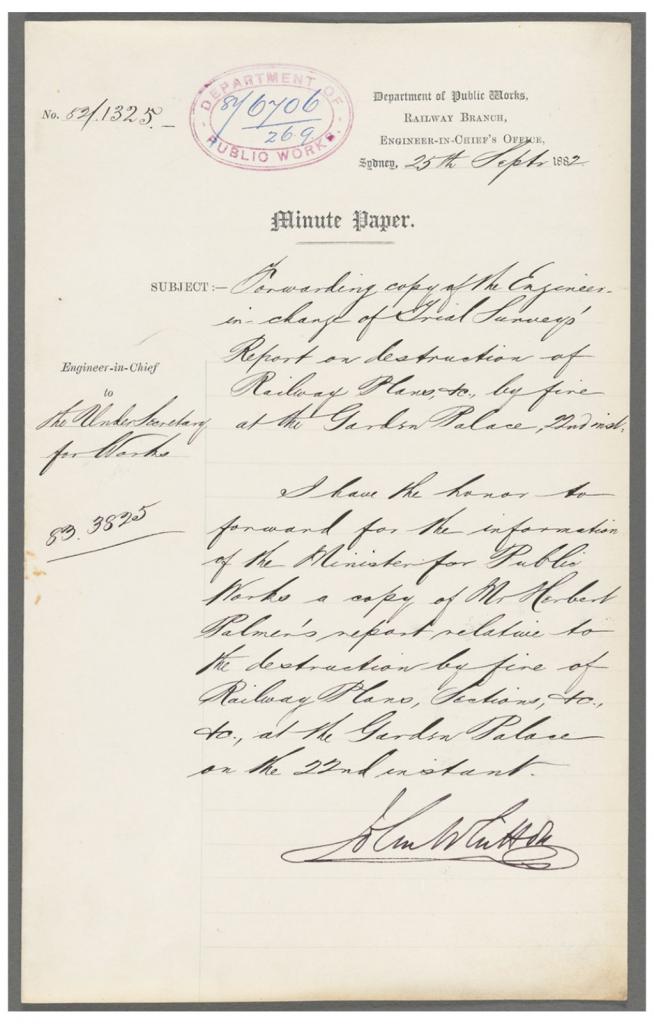 No. 82/.1325.
DEPARTMENT OF
84/6706
269
PUBLIC WORKS.
Department of Public Works,
RAILWAY BRANCH,
ENGINEER-IN-CHIEF'S OFFICE,
Sydney, 25th Septr 1882
Minute Paper.
SUBJECT:— Forwarding copy of the Engineer-
in-charge of Trial Surveys'
Report on destruction of
Railway Plans, &c., by fire
at the Garden Palace, 22nd inst.
Engineer-in-Chief
to
the Under Secretary
for Works
83.3825
I have the honor to
forward for the information
of the Minister for Public
Works a copy of Mr Herbert
Palmer's report relative to
the destruction by fire of
Railway Plans, Sections, &c.,
&c., at the Garden Palace
on the 22nd instant.
John Whitton